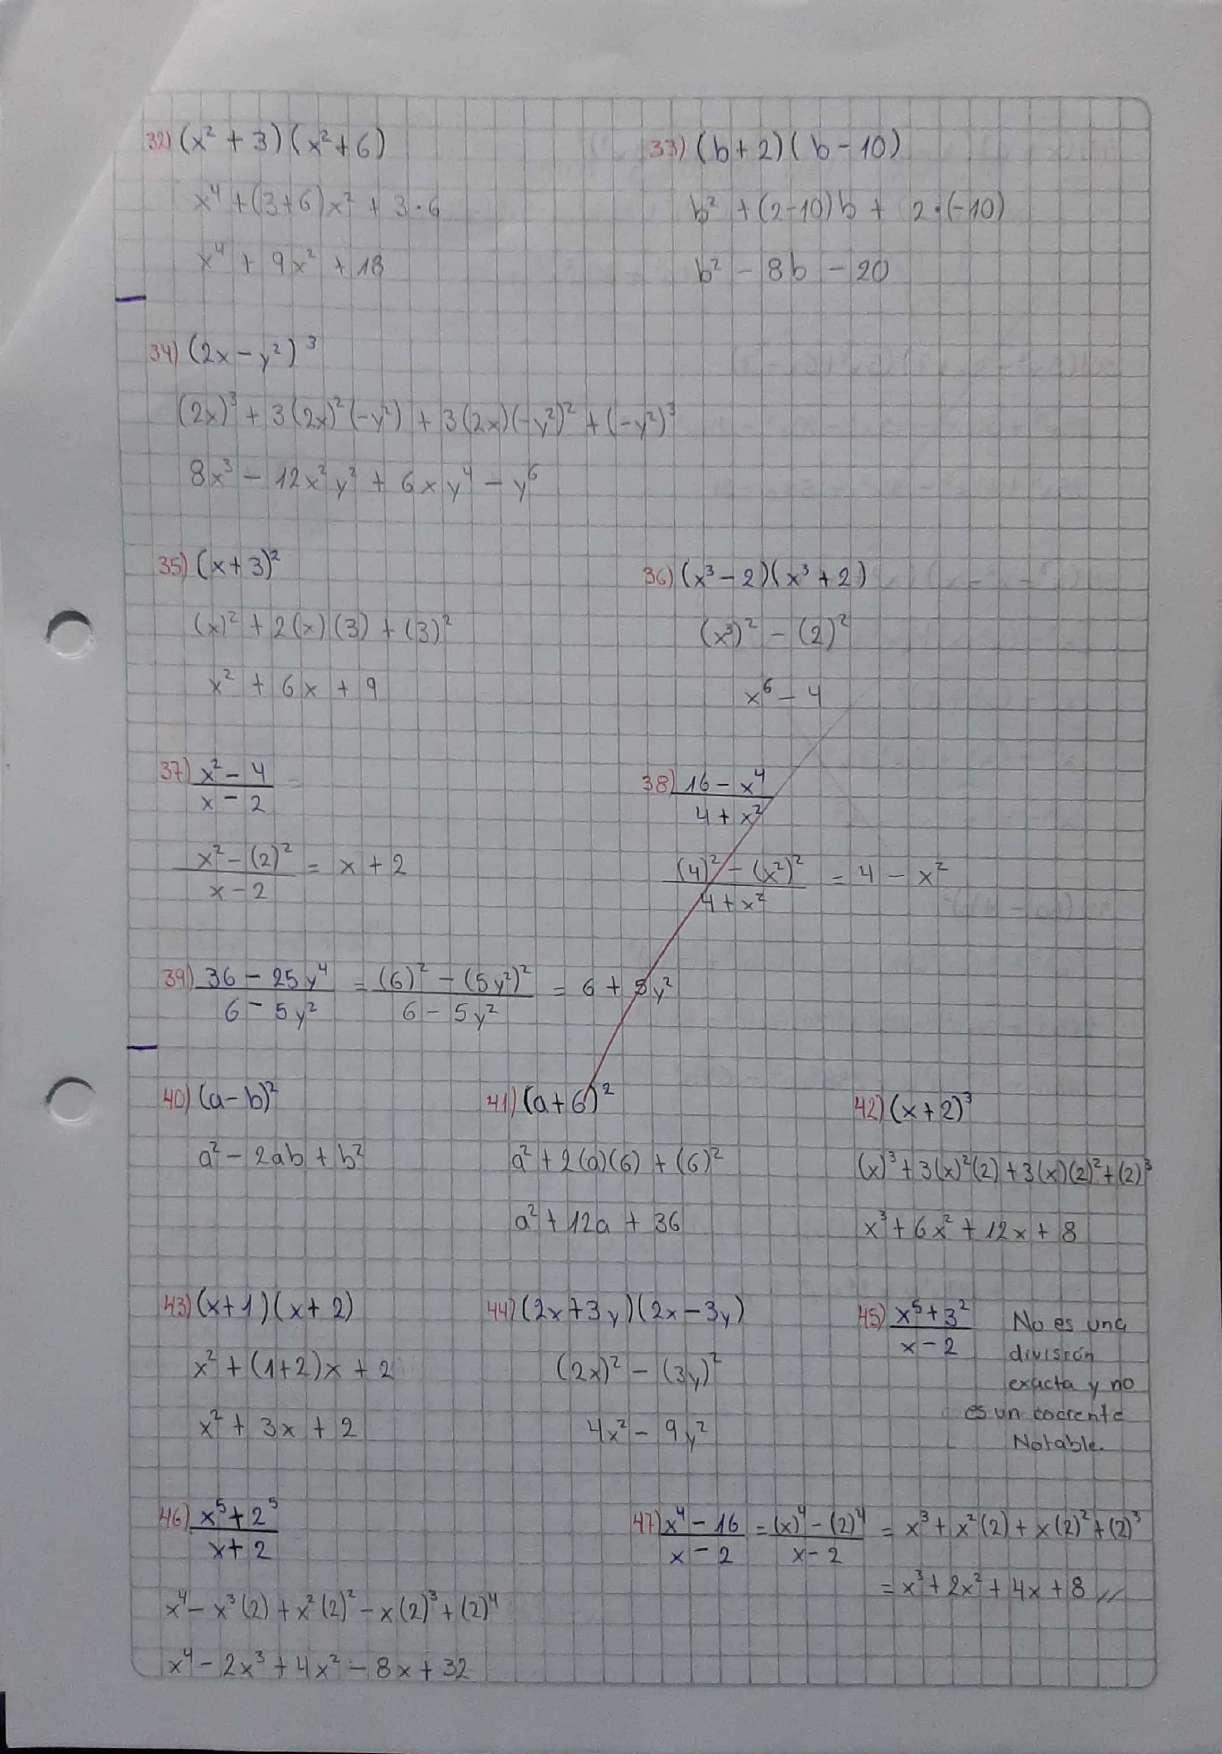 32) (x² + 3)(x² + 6)
x⁴ + (3+6)x² + 3·6
x⁴ + 9x² + 18
33) (b + 2)(b - 10)
b² + (2-10)b + 2·(-10)
b² - 8b - 20
34) (2x - y²)³
(2x)³ + 3(2x)²(-y²) + 3(2x)(-y²)² + (-y²)³
8x³ - 12x²y² + 6xy⁴ - y⁶
35) (x + 3)²
(x)² + 2(x)(3) + (3)²
x² + 6x + 9
36) (x³ - 2)(x³ + 2)
(x³)² - (2)²
x⁶ - 4
37) x² - 4
x - 2
x² - (2)² = x + 2
x - 2
38) 16 - x⁴
4 + x²
(4)² - (x²)² = 4 - x²
4 + x²
39) 36 - 25y⁴ = (6)² - (5y²)² = 6 + 5y²
6 - 5y² 6 - 5y²
40) (a - b)²
a² - 2ab + b²
41) (a + 6)²
a² + 2(a)(6) + (6)²
a² + 12a + 36
42) (x + 2)³
(x)³ + 3(x)²(2) + 3(x)(2)² + (2)³
x³ + 6x² + 12x + 8
43) (x + 1)(x + 2)
x² + (1+2)x + 2
x² + 3x + 2
44) (2x + 3y)(2x - 3y)
(2x)² - (3y)²
4x² - 9y²
45) x⁵ + 3²
x - 2
No es una
división
exacta y no
es un cociente
Notable.
46) x⁵ + 2⁵
x + 2
x⁴ - x³(2) + x²(2)² - x(2)³ + (2)⁴
x⁴ - 2x³ + 4x² - 8x + 32
47) x⁴ - 16 = (x)⁴ - (2)⁴ = x³ + x²(2) + x(2)² + (2)³
x - 2 x - 2
= x³ + 2x² + 4x + 8 //